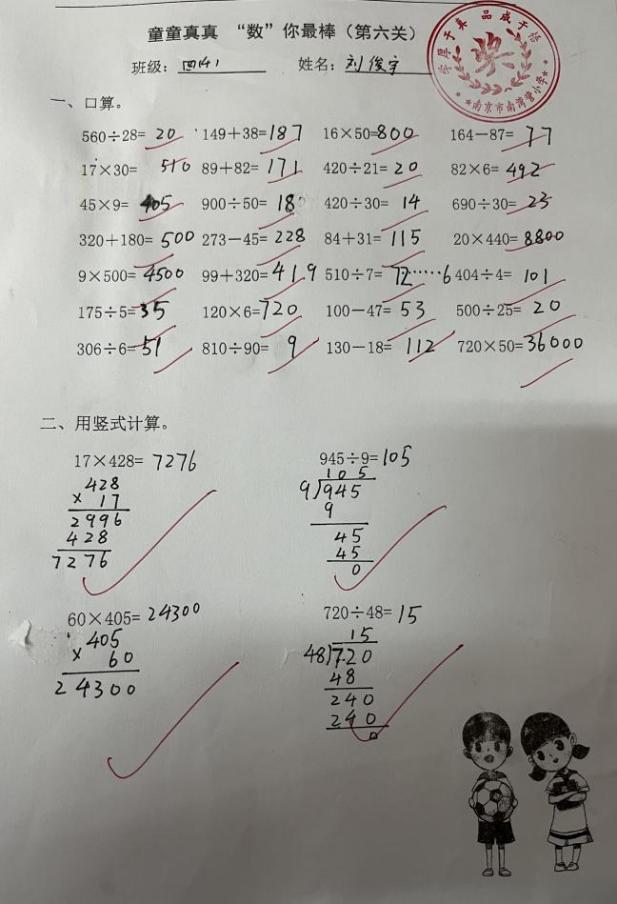 童童真真 “数”你最棒（第六关）
班级：四(4) 姓名：刘俊宇
奖
南京市南湾营小学
一、口算。
560÷28= 20 149+38=187 16×50=800 164-87= 77
17×30= 510 89+82= 171 420÷21= 20 82×6= 492
45×9= 405 900÷50= 18 420÷30= 14 690÷30= 23
320+180= 500 273-45= 228 84+31= 115 20×440= 8800
9×500= 4500 99+320= 419 510÷7= 72……6 404÷4= 101
175÷5= 35 120×6= 720 100-47= 53 500÷25= 20
306÷6= 51 810÷90= 9 130-18= 112 720×50= 36000
二、用竖式计算。
17×428= 7276 945÷9= 105
428
× 17
2996
428
7276
105
9)945
9
45
45
0
60×405= 24300 720÷48= 15
405
× 60
24300
15
48)720
48
240
240
0